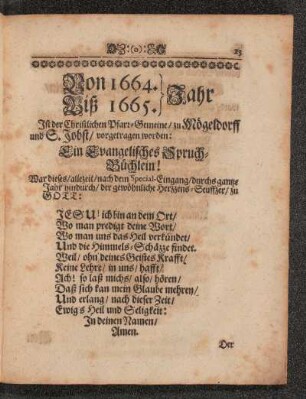 :(o): 23
Von 1664.
Biß 1665. } Jahr
Ist der Christlichen Pfarr-Gemeine/ zu Mögeldorff
und S. Jobst/ vorgetragen worden:
Ein Evangelisches Spruch-
Büchlein!
War dieses/ allezeit/ nach dem Special-Eingang/ durchs gantze
Jahr hindurch/ der gewöhnliche Hertzens-Seuffzer/ zu
GOTT:
JESU! ich bin an dem Ort/
Wo man predigt deine Wort/
Wo man uns das Heil verkündet/
Und die Himmels-Schätze findet.
Weil/ ohn deines Geistes Krafft/
Keine Lehre/ in uns/ hafft/
Ach! so laß mich/ also/ hören/
Daß sich kan mein Glaube mehren/
Und erlang/ nach dieser Zeit/
Ewigs Heil und Seligkeit:
In deinen Namen/
Amen.
Der